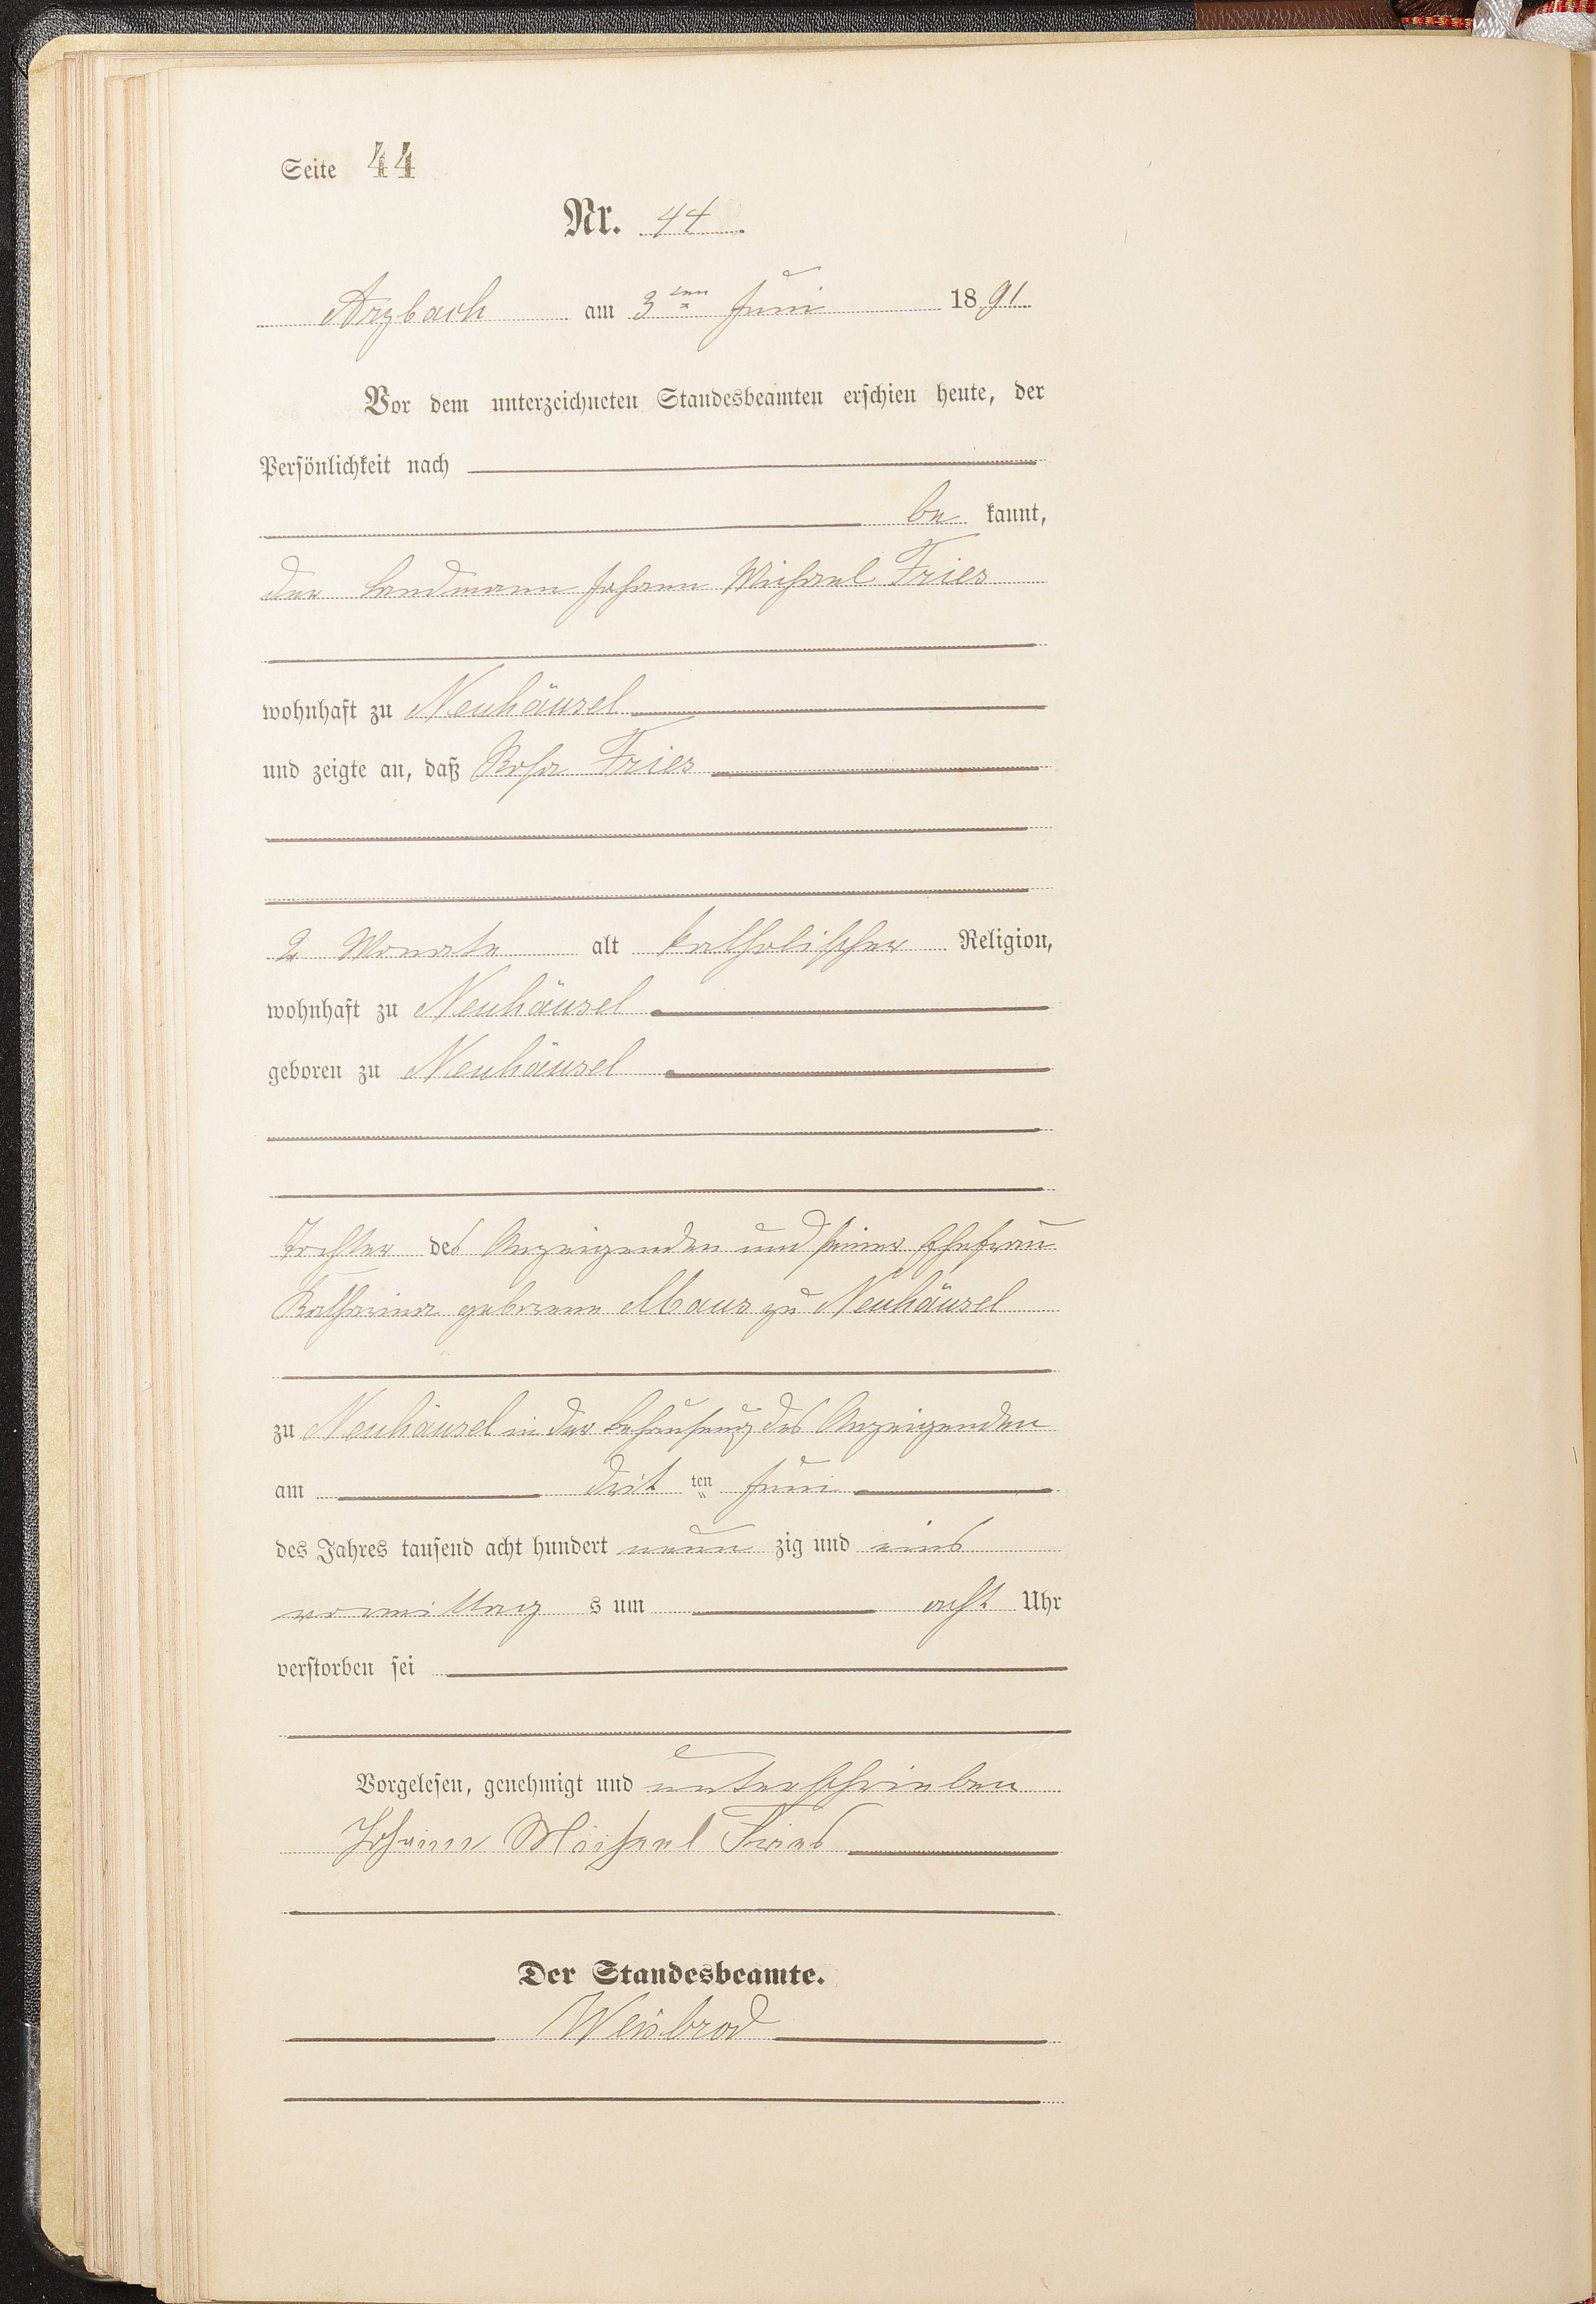 Seite 44
Nr. 44
Arzbach am 3ten Juni 1891
Vor dem unterzeichneten Standesbeamten erschien heute, der
Persönlichkeit nach
be kannt,
der Landmann Johann Michael Fries
wohnhaft zu Neuhäusel
und zeigte an, daß Rosa Fries
2 Monate alt katholischer Religion,
wohnhaft zu Neuhäusel
geboren zu Neuhäusel
Tochter des Anzeigenden und seiner Ehefrau
Katharina geborene Maus zu Neuhäusel
zu Neuhäusel in der Behausung des Anzeigenden
am drit ten Juni
des Jahres tausend acht hundert neun zig und eins
vormittag s um acht Uhr
verstorben sei
Vorgelesen, genehmigt und unterschrieben
Johann Michael Fries
Der Standesbeamte.
Weisbrod